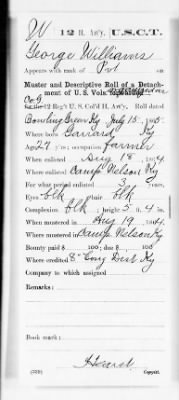 W 12 H. Art'y. U.S.C.T.
George Williams
Appears with rank of Pvt on
Muster and Descriptive Roll of a Detach-
ment of U. S. Vols.
Co G
for the 12 Reg't U. S. Col'd H. Art'y. Roll dated
Bowling Green Ky July 15, 1865.
Where born Garrard Ky
Age 27 y'rs; occupation farmer
When enlisted Aug 18, 1864
Where enlisted Camp Nelson Ky
For what period enlisted 3 years.
Eyes blk ; hair blk
Complexion blk ; height 5 ft. 4 in.
When mustered in Aug 19, 1864.
Where mustered in Camp Nelson Ky
Bounty paid $ 100; due $ 100
Where credited 8" Cong Dist Ky
Company to which assigned
Remarks:
Book mark:
(339) Copyist.